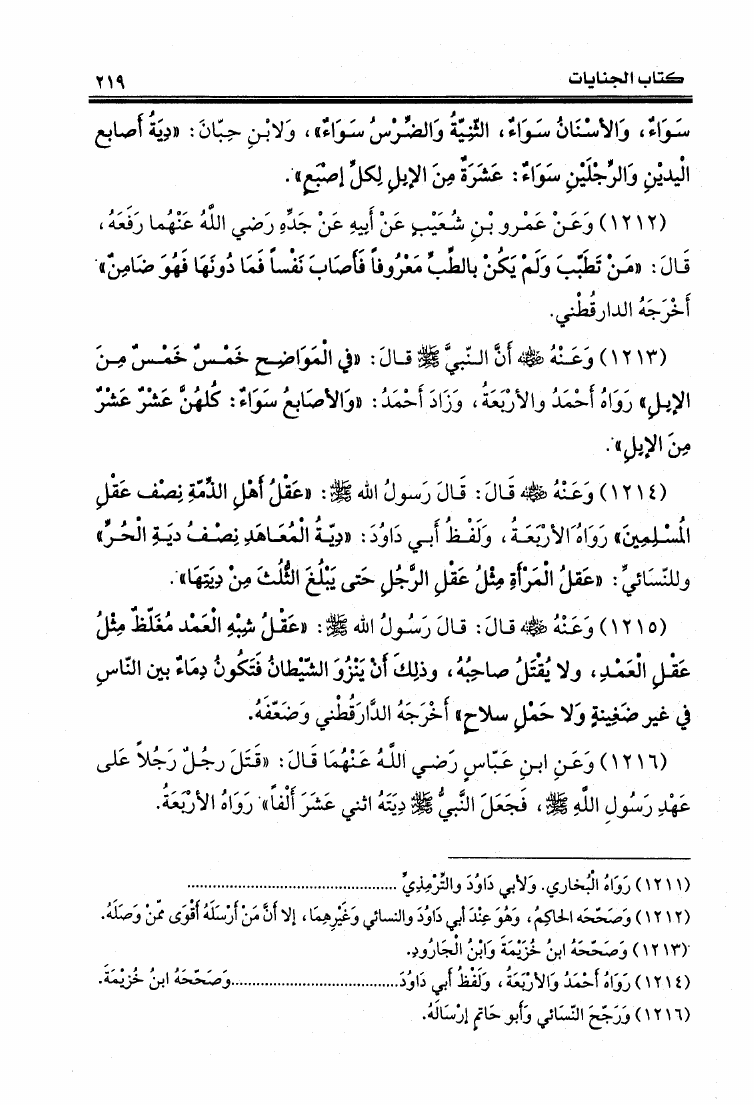 كتاب الجنايات ٢١٩
سَوَاءٌ، وَالأسْنَانُ سَوَاءٌ، الثَّنِيَّةُ وَالضِّرْسُ سَوَاءٌ»، وَلابْنِ حِبَّانَ: «دِيَةُ أصابع
الْيدينِ وَالرِّجْلَيْنِ سَوَاءٌ: عَشَرَةٌ مِنَ الإبِلِ لِكلِّ إصْبَعٍ».
(١٢١٢) وَعَنْ عَمْرِو بْنِ شُعَيْبٍ عَنْ أَبِيهِ عَنْ جَدِّهِ رَضِي اللَّهُ عَنْهُما رَفَعَهُ،
قَالَ: «مَنْ تَطَبَّبَ وَلَمْ يَكُنْ بالطِّبِّ مَعْرُوفاً فَأَصَابَ نَفْساً فَمَا دُونَهَا فَهُوَ ضَامِنٌ»
أَخْرَجَهُ الدارقُطْنِي.
(١٢١٣) وَعَنْهُ ﷺ أَنَّ النّبيَّ ﷺ قالَ: «في الْمَوَاضِحِ خَمْسٌ خَمْسٌ مِنَ
الإبلِ» رَوَاهُ أَحْمَدُ والأرْبَعَةُ، وَزَادَ أَحْمَدُ: «وَالأصَابعُ سَوَاءٌ: كُلهُنَّ عَشْرٌ عَشْرٌ
مِنَ الإبلِ».
(١٢١٤) وَعَنْهُ ﷺ قَالَ: قَالَ رَسولُ الله ﷺ: «عَقْلُ أَهْلِ الذِّمّةِ نِصْف عَقْلِ
الْمُسْلِمِينَ» رَوَاهُ الأرْبَعَةُ، وَلَفْظُ أبي دَاوُدَ: «دِيّةُ الْمُعَاهَدِ نِصْفُ دِيَةِ الْحُرِّ»
وللنّسَائيِّ: «عَقلُ الْمَرْأَةِ مِثْلُ عَقْلِ الرَّجُلِ حَتى يَبْلُغَ الثُّلُثَ مِنْ دِيَتِهَا».
(١٢١٥) وَعَنْهُ ﷺ قالَ: قالَ رَسُولُ الله ﷺ: «عَقْلُ شِبْهِ الْعَمْد مُغَلّظٌ مِثْلُ
عَقْلِ الْعَمْدِ، ولا يُقْتَلُ صاحِبُهُ، وذلِكَ أَنْ يَنْزُوَ الشّيْطانُ فَتَكُونُ دِمَاءٌ بين النّاسِ
في غير ضَغِينةٍ وَلا حَمْلِ سلاحٍ» أَخْرَجَهُ الدَّارَقُطْني وَضَعّفَهُ.
(١٢١٦) وَعَنِ ابنِ عَبّاسٍ رَضِي اللَّهُ عَنْهُمَا قَالَ: «قَتَلَ رجُلٌ رَجُلاً عَلى
عَهْدِ رَسُولِ اللَّهِ ﷺ، فَجَعَلَ النَّبيُّ ﷺ دِيَتَهُ اثني عَشَرَ أَلْفاً» رَوَاهُ الأرْبَعَةُ.
(١٢١١) رَوَاهُ الْبُخاري. وَلأبي دَاوُدَ والتِّرْمِذِيِّ ..........
(١٢١٢) وَصَحّحَه الحاكِمُ، وَهُوَ عِنْدَ أبي دَاوُدَ والنسائي وَغَيْرِهِمَا، إلا أنَّ مَنْ أَرْسَلَهُ أَقْوَى مِمّنْ وَصَلَهُ.
(١٢١٣) وَصَحّحَهُ ابنُ خُزَيْمَةَ وَابْنُ الْجَارُودِ.
(١٢١٤) رَوَاهُ أَحْمَدُ وَالأرْبَعَةُ، وَلَفْظُ أبي دَاوُدَ..........وَصَحّحَهُ ابنُ خُزَيْمَةَ.
(١٢١٦) وَرَجّحَ النّسَائي وَأبو حَاتمٍ إرْسَالَهُ.